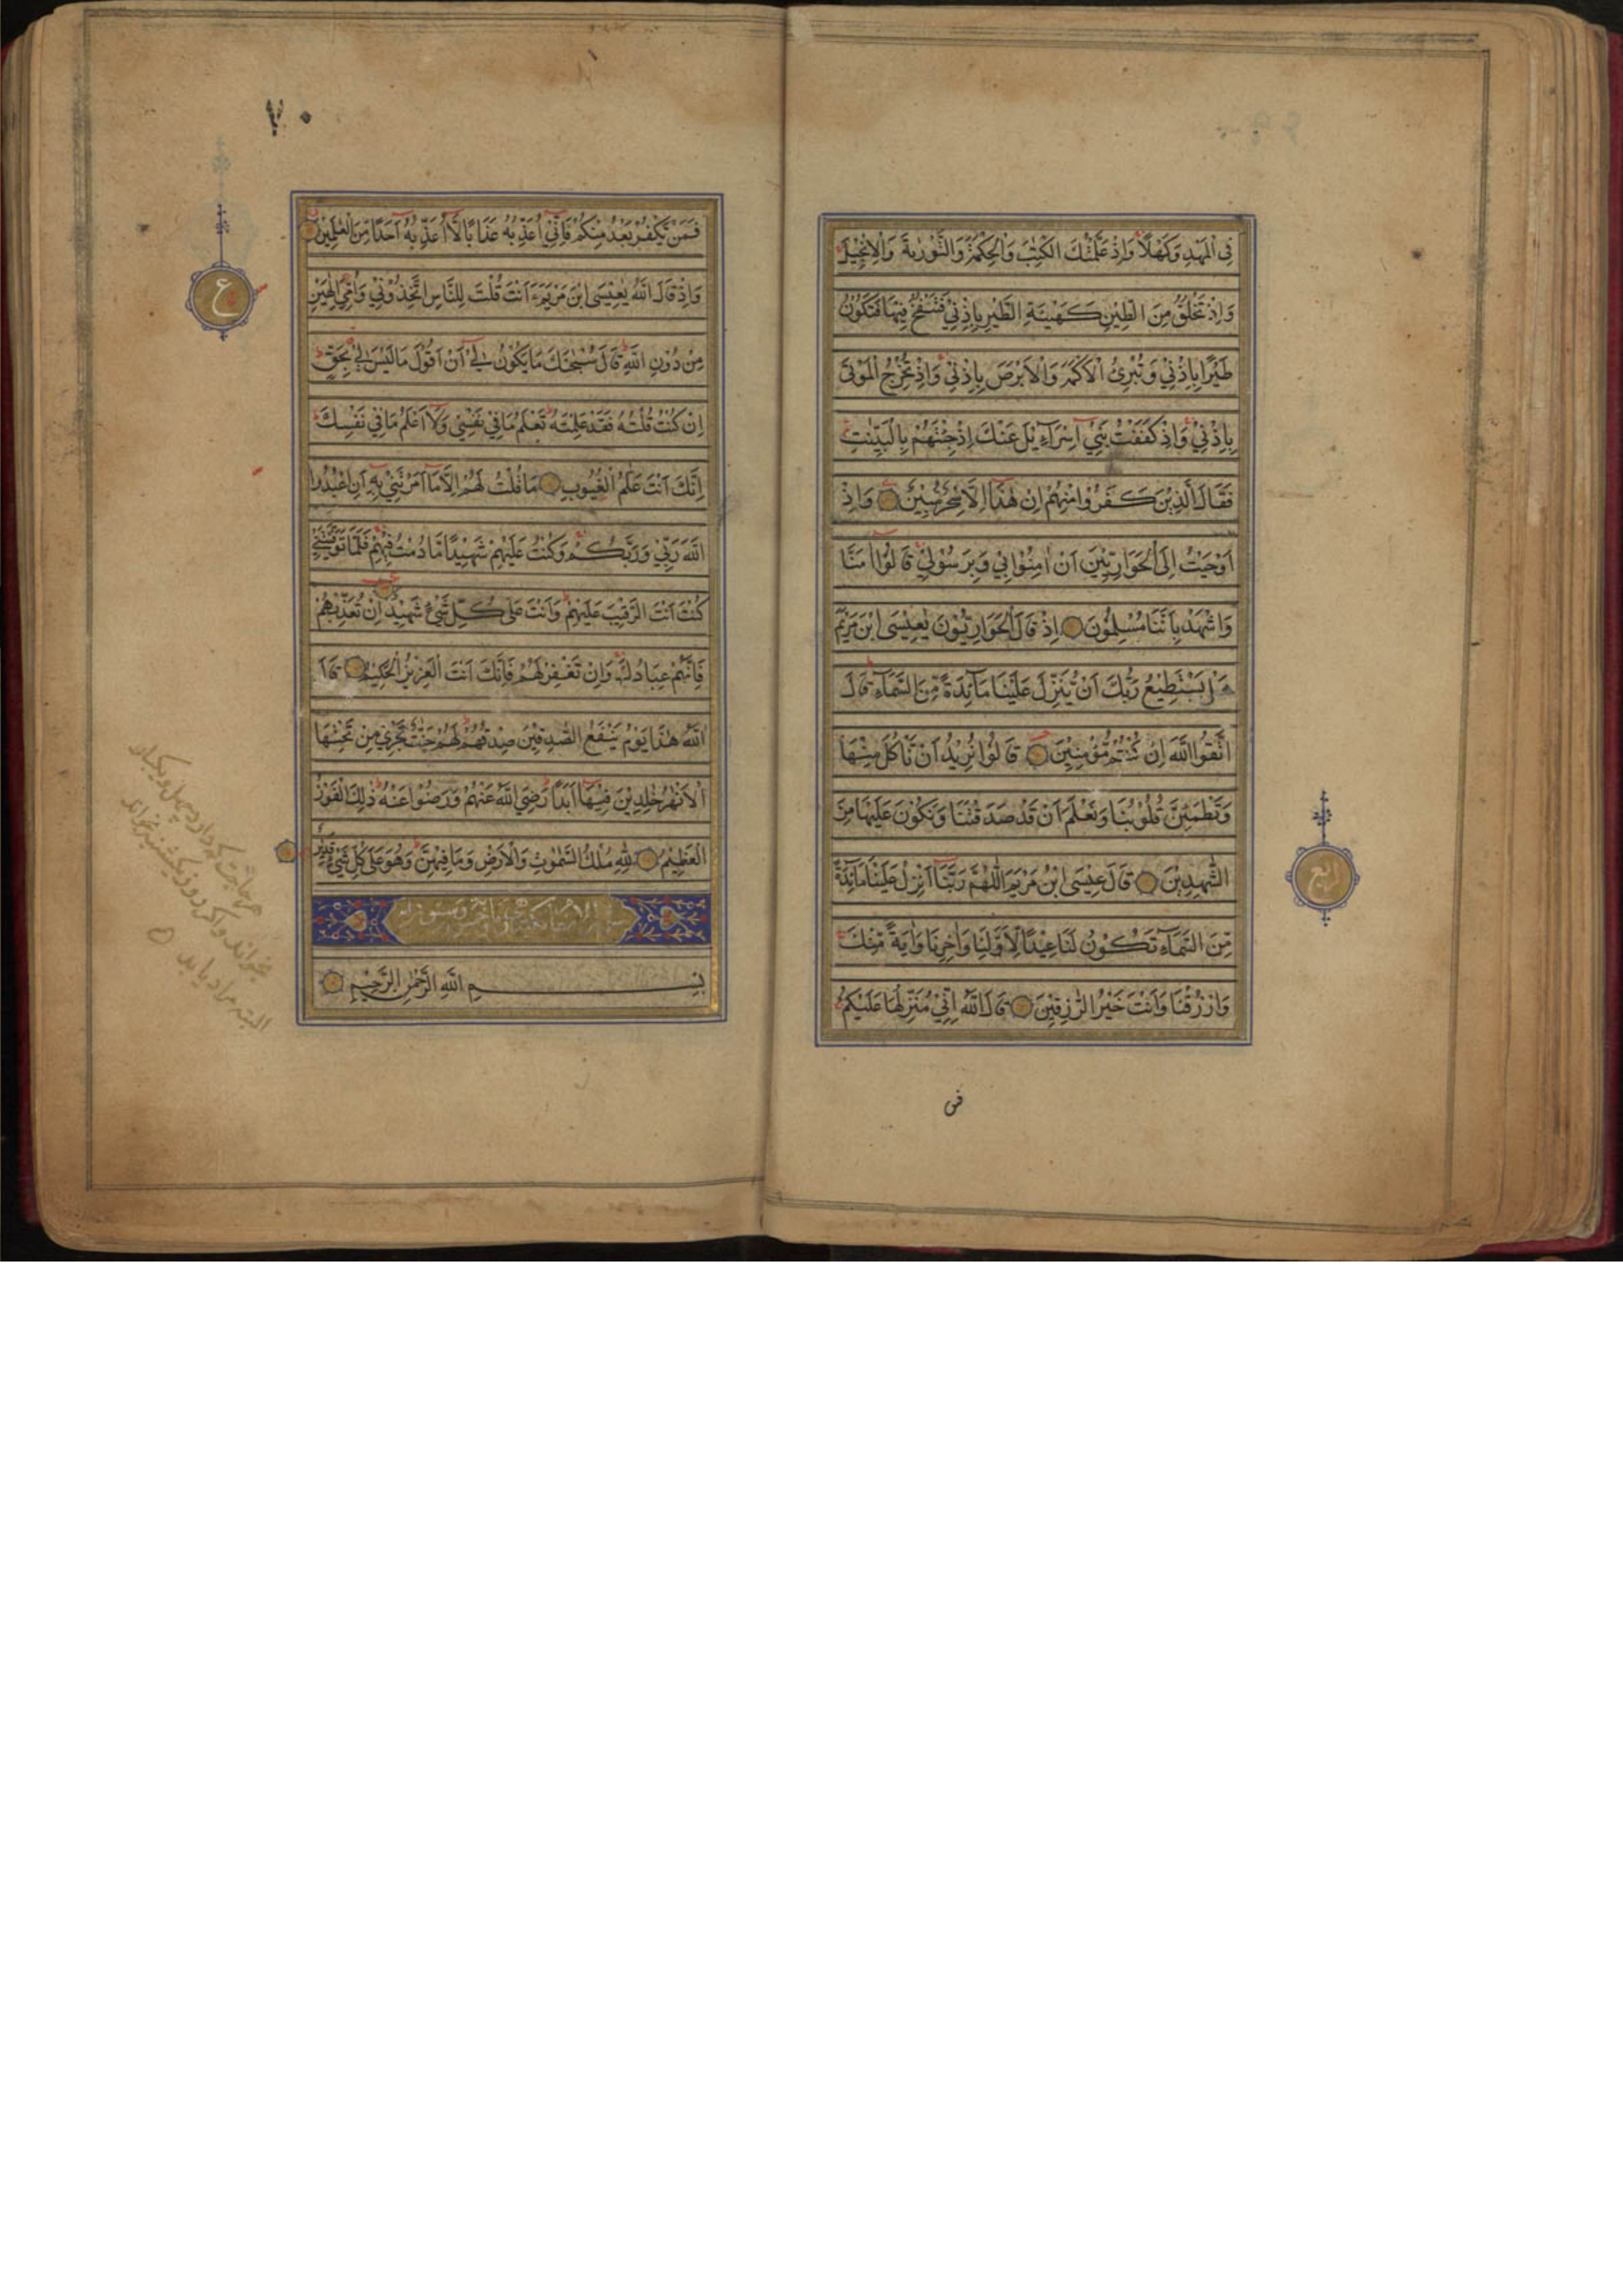 فِي الْمَهْدِ وَكَهْلًا وَاِذْ عَلَّمْتُكَ الْكِتٰبَ وَالْحِكْمَةَ وَالتَّوْرٰىةَ وَالْاِنْجِيْلَ
وَاِذْ تَخْلُقُ مِنَ الطِّيْنِ كَهَيْئَةِ الطَّيْرِ بِاِذْنِيْ فَتَنْفُخُ فِيْهَا فَتَكُوْنُ
طَيْرًا بِاِذْنِيْ وَتُبْرِئُ الْاَكْمَهَ وَالْاَبْرَصَ بِاِذْنِيْ وَاِذْ تُخْرِجُ الْمَوْتٰى
بِاِذْنِيْ وَاِذْ كَفَفْتُ بَنِيْ اِسْرَآءِيْلَ عَنْكَ اِذْ جِئْتَهُمْ بِالْبَيِّنٰتِ
فَقَالَ الَّذِيْنَ كَفَرُوْا مِنْهُمْ اِنْ هٰذَا اِلَّا سِحْرٌ مُّبِيْنٌ وَاِذْ
اَوْحَيْتُ اِلَى الْحَوَارِيّٖنَ اَنْ اٰمِنُوْا بِيْ وَبِرَسُوْلِيْ قَالُوْا اٰمَنَّا
وَاشْهَدْ بِاَنَّنَا مُسْلِمُوْنَ اِذْ قَالَ الْحَوَارِيُّوْنَ يٰعِيْسَى ابْنَ مَرْيَمَ
هَلْ يَسْتَطِيْعُ رَبُّكَ اَنْ يُّنَزِّلَ عَلَيْنَا مَآئِدَةً مِّنَ السَّمَآءِ قَالَ
اتَّقُوا اللّٰهَ اِنْ كُنْتُمْ مُّؤْمِنِيْنَ قَالُوْا نُرِيْدُ اَنْ نَّاْكُلَ مِنْهَا
وَتَطْمَئِنَّ قُلُوْبُنَا وَنَعْلَمَ اَنْ قَدْ صَدَقْتَنَا وَنَكُوْنَ عَلَيْهَا مِنَ
الشّٰهِدِيْنَ قَالَ عِيْسَى ابْنُ مَرْيَمَ اللّٰهُمَّ رَبَّنَآ اَنْزِلْ عَلَيْنَا مَآئِدَةً
مِّنَ السَّمَآءِ تَكُوْنُ لَنَا عِيْدًا لِّاَوَّلِنَا وَاٰخِرِنَا وَاٰيَةً مِّنْكَ
وَارْزُقْنَا وَاَنْتَ خَيْرُ الرّٰزِقِيْنَ قَالَ اللّٰهُ اِنِّيْ مُنَزِّلُهَا عَلَيْكُمْ
فمن
٧٠
فَمَنْ يَّكْفُرْ بَعْدُ مِنْكُمْ فَاِنِّيْٓ اُعَذِّبُهٗ عَذَابًا لَّآ اُعَذِّبُهٗٓ اَحَدًا مِّنَ الْعٰلَمِيْنَ
ع
وَاِذْ قَالَ اللّٰهُ يٰعِيْسَى ابْنَ مَرْيَمَ ءَاَنْتَ قُلْتَ لِلنَّاسِ اتَّخِذُوْنِيْ وَاُمِّيَ اِلٰهَيْنِ
مِنْ دُوْنِ اللّٰهِ قَالَ سُبْحٰنَكَ مَا يَكُوْنُ لِيْٓ اَنْ اَقُوْلَ مَا لَيْسَ لِيْ بِحَقٍّ
اِنْ كُنْتُ قُلْتُهٗ فَقَدْ عَلِمْتَهٗ تَعْلَمُ مَا فِيْ نَفْسِيْ وَلَآ اَعْلَمُ مَا فِيْ نَفْسِكَ
اِنَّكَ اَنْتَ عَلَّامُ الْغُيُوْبِ مَا قُلْتُ لَهُمْ اِلَّا مَآ اَمَرْتَنِيْ بِهٖٓ اَنِ اعْبُدُوا
اللّٰهَ رَبِّيْ وَرَبَّكُمْ وَكُنْتُ عَلَيْهِمْ شَهِيْدًا مَّا دُمْتُ فِيْهِمْ فَلَمَّا تَوَفَّيْتَنِيْ
كُنْتَ اَنْتَ الرَّقِيْبَ عَلَيْهِمْ وَاَنْتَ عَلٰى كُلِّ شَيْءٍ شَهِيْدٌ اِنْ تُعَذِّبْهُمْ
فَاِنَّهُمْ عِبَادُكَ وَاِنْ تَغْفِرْ لَهُمْ فَاِنَّكَ اَنْتَ الْعَزِيْزُ الْحَكِيْمُ قَالَ
اللّٰهُ هٰذَا يَوْمُ يَنْفَعُ الصّٰدِقِيْنَ صِدْقُهُمْ لَهُمْ جَنّٰتٌ تَجْرِيْ مِنْ تَحْتِهَا
الْاَنْهٰرُ خٰلِدِيْنَ فِيْهَآ اَبَدًا رَضِيَ اللّٰهُ عَنْهُمْ وَرَضُوْا عَنْهُ ذٰلِكَ الْفَوْزُ
الْعَظِيْمُ لِلّٰهِ مُلْكُ السَّمٰوٰتِ وَالْاَرْضِ وَمَا فِيْهِنَّ وَهُوَ عَلٰى كُلِّ شَيْءٍ قَدِيْرٌ
بِسْمِ اللّٰهِ الرَّحْمٰنِ الرَّحِيْمِ
هر حاجت که دارد چهل و یکبار
بخواند و اگر در روز یکشنبه بخواند
البته مراد یابد